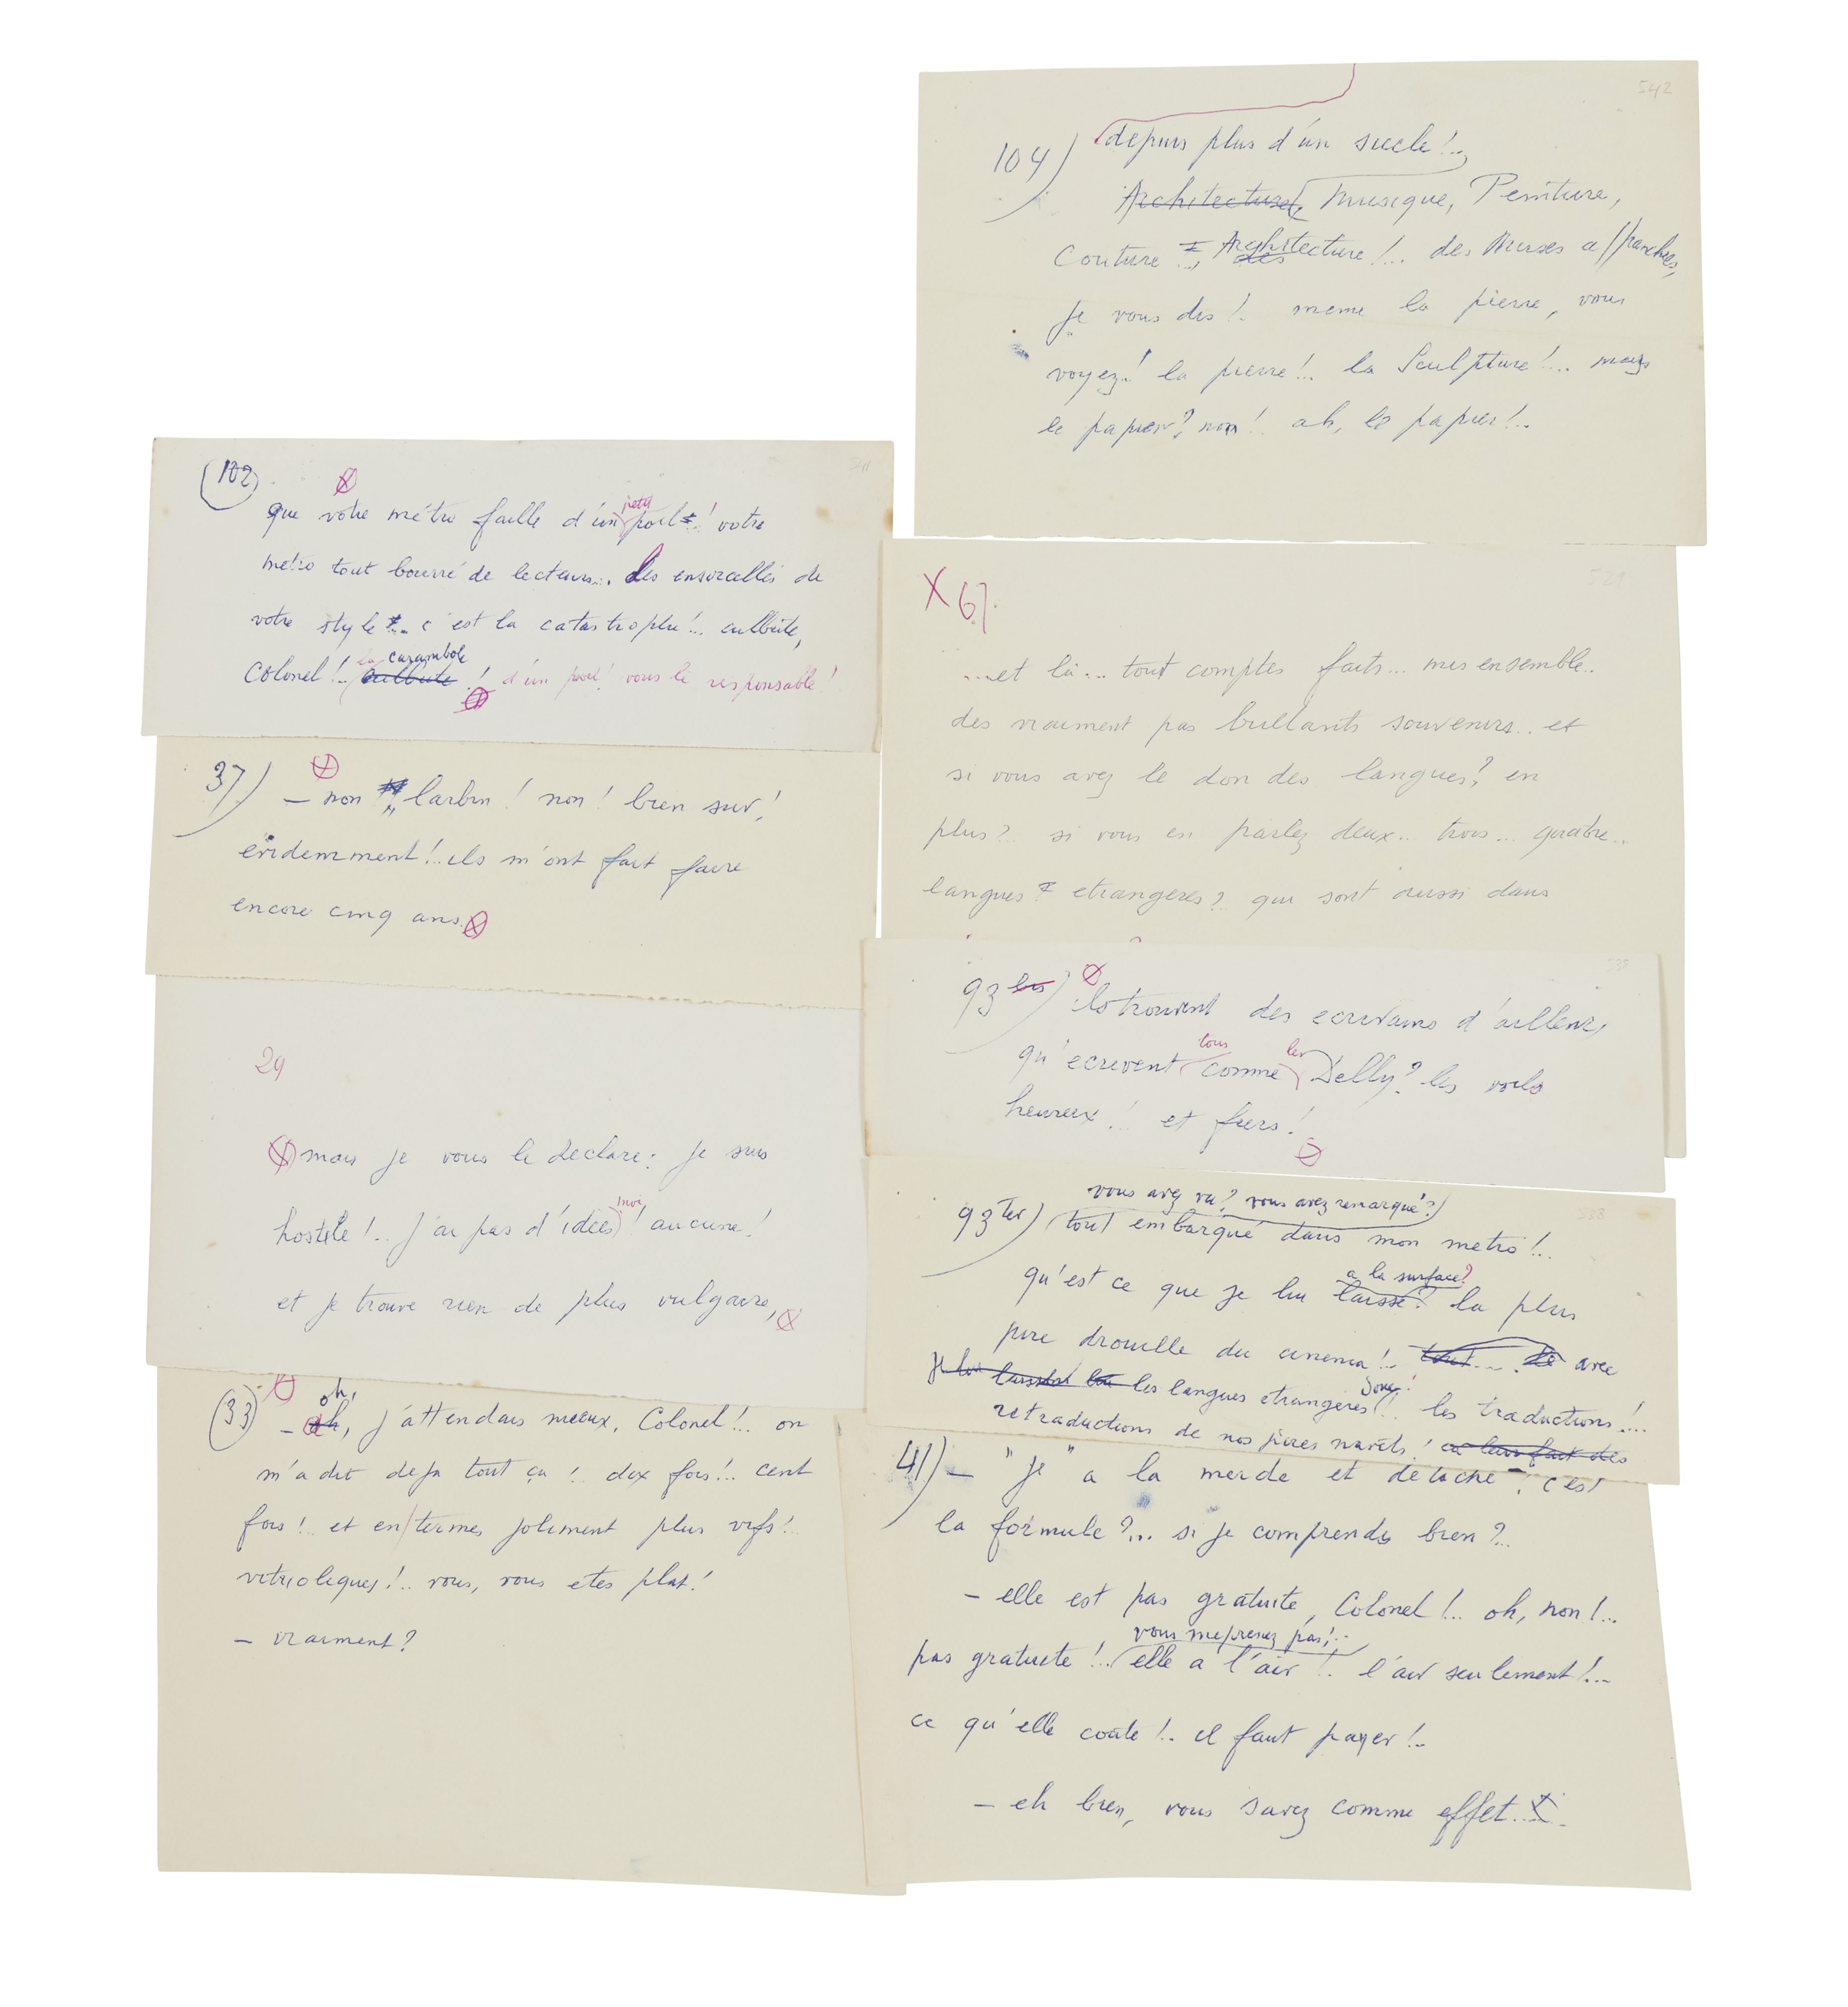 542
104) depuis plus d'un siecle!..
Architecture, Musique, Peinture,
Couture.., Architecture!.. des Muses affranchies,
je vous dis!. meme la pierre, vous
voyez! la pierre!.. la Sculpture!... mais
le papier? non! ah, le papier!..
(102)
que votre métro faille d'un petit poil..! votre
metro tout bourré de lecteurs... les ensorcellés de
votre style... c'est la catastrophe!... culbute,
Colonel!.. la carambole culbute! d'un poil! vous le responsable!
37) – non larbin! non! bien sur!
evidemment!..ils m'ont fait faire
encore cinq ans.
29
mais je vous le declare: je suis
hostile!.. j'ai pas d'idées moi! aucune!
et je trouve rien de plus vulgaire,
(33) – oh, j'attendais mieux, Colonel!.. on
m'a dit deja tout ça!.. dix fois!.. cent
fois!.. et en termes joliment plus vifs!..
vitrioliques!.. vous, vous etes plat!
– vraiment?
529
X 67.
...et là... tout comptes faits... mis ensemble..
des vraiment pas brillants souvenirs... et
si vous avez le don des langues? en
plus?.. si vous en parlez deux.. trois... quatre...
langues etrangeres?.. qui sont aussi dans
93 bis) Ils trouvent des ecrivains d'ailleurs,
qu'ecrivent tous comme les Delly? les voila
heureux!.. et fiers!
533
93 ter) vous avez vu? vous avez remarqué?
tout embarqué dans mon metro!...
qu'est ce que je lui laisse? a la surface? la plus
pire drouille du cinema!.. tout... de avec
je lui laisse les langues etrangeres donc!.. les traductions!...
retraductions de nos pires navets! on leur fait des
41) – "je" a la merde et détaché. c'est
la formule?... si je comprends bien?...
– elle est pas gratuite, Colonel!.. oh, non!...
pas gratuite!.. vous meprenez pas!.. elle a l'air!.. l'air seulement!...
ce qu'elle coute!.. il faut payer!..
– eh bien, vous savez comme effet...